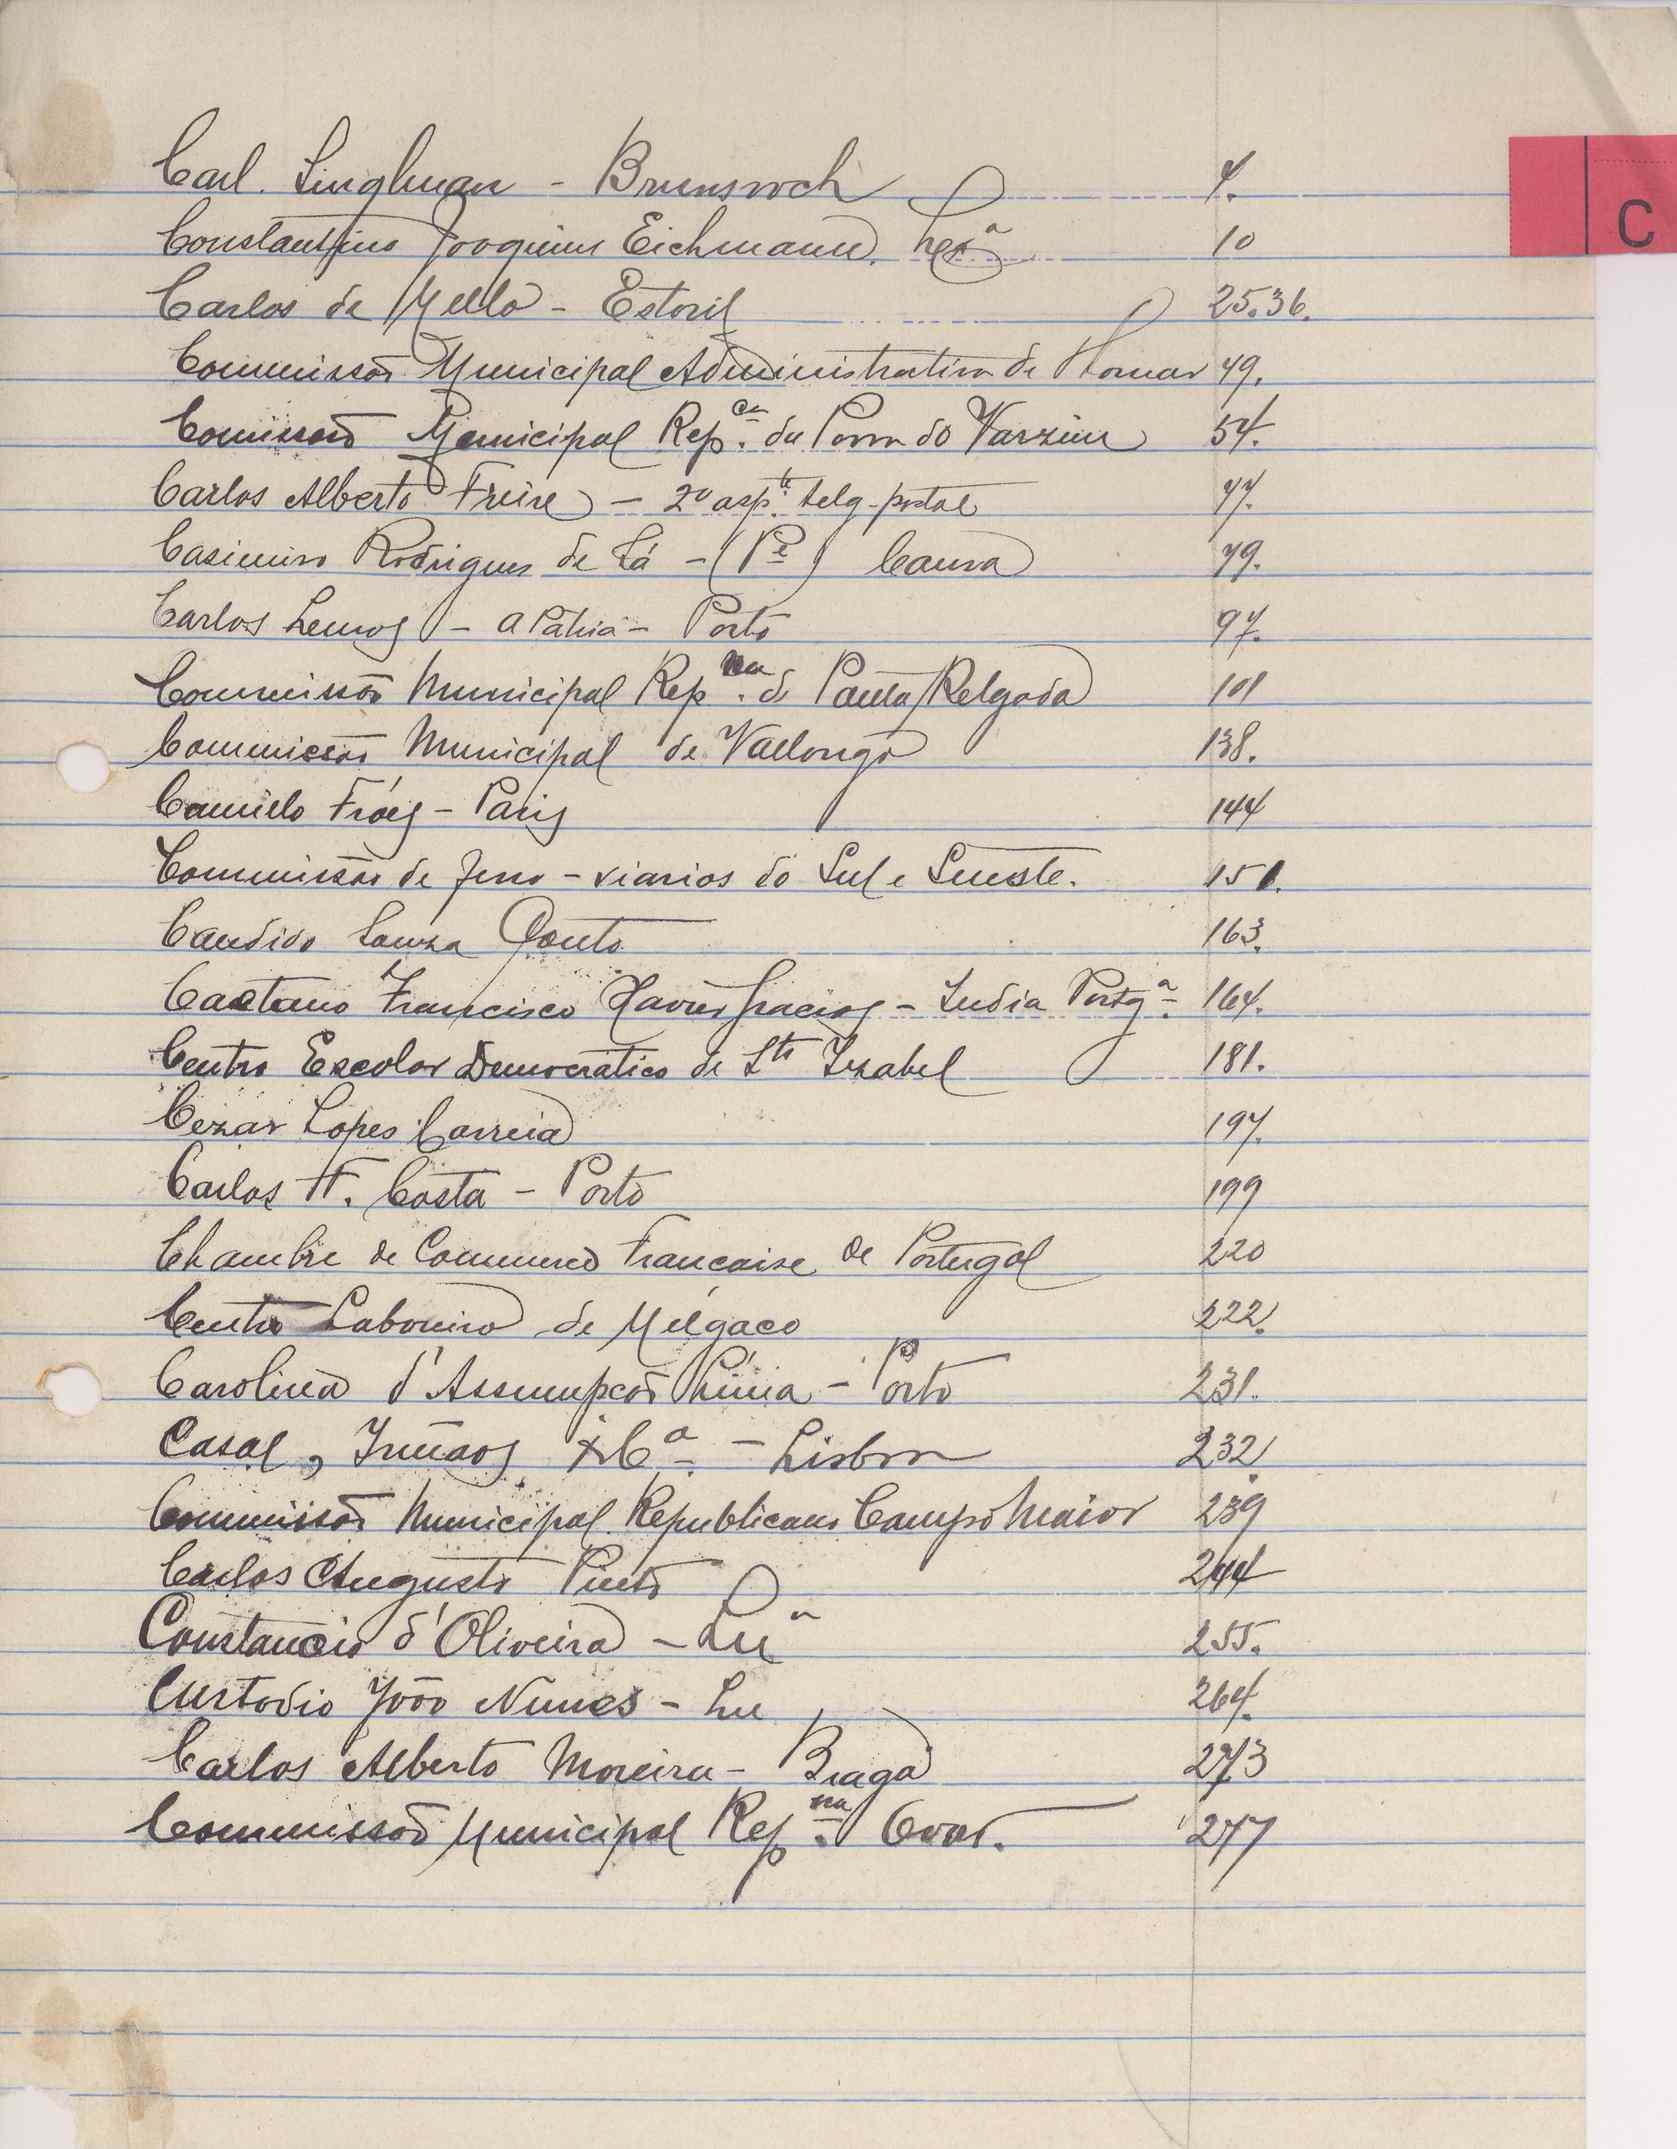 C
Carl. Singlman - Brunswch 7.
Constantino Joaquim Eichmann. Lxª 10
Carlos de Mello - Estoril 25.36.
Commissão Municipal Administrativa de Thomar 49.
Comissão Municipal Rep.ca da Povoa do Varzim 54.
Carlos Alberto Freire - 2º asp.te telg-postal 77.
Casimiro Rodrigues de Sá - (Pe) Caura 79.
Carlos Lemos - a Patria - Porto 97.
Commissão Municipal Rep.na de Ponta Delgada 101
Commissão Municipal de Vallongo 138.
Camillo Fróes - Paris 144
Commissão de ferro-viarios do Sul e Sueste. 151.
Candido Souza Couto 163.
Caetano Francisco Xavier Gracias - India Portgª 164.
Centro Escolar Democratico de Sta Izabel 181.
Cezar Lopes Correia 197.
Carlos F. Costa - Porto 199
Chambre de Commerce Francaise de Portugal 220
Centro Laboreiro de Melgaço 222.
Carolina d'Assumpção Lima - Porto 231.
Casal, Irmãos & Cª - Lisboa 232.
Commissão Municipal Republicana Campo Maior 239
Carlos Augusto Pinto 244
Constancio d'Oliveira - 255.
Custodio João Nunes - 264.
Carlos Alberto Moreira - Braga 273
Commissão Municipal Rep.na Ovar. 277